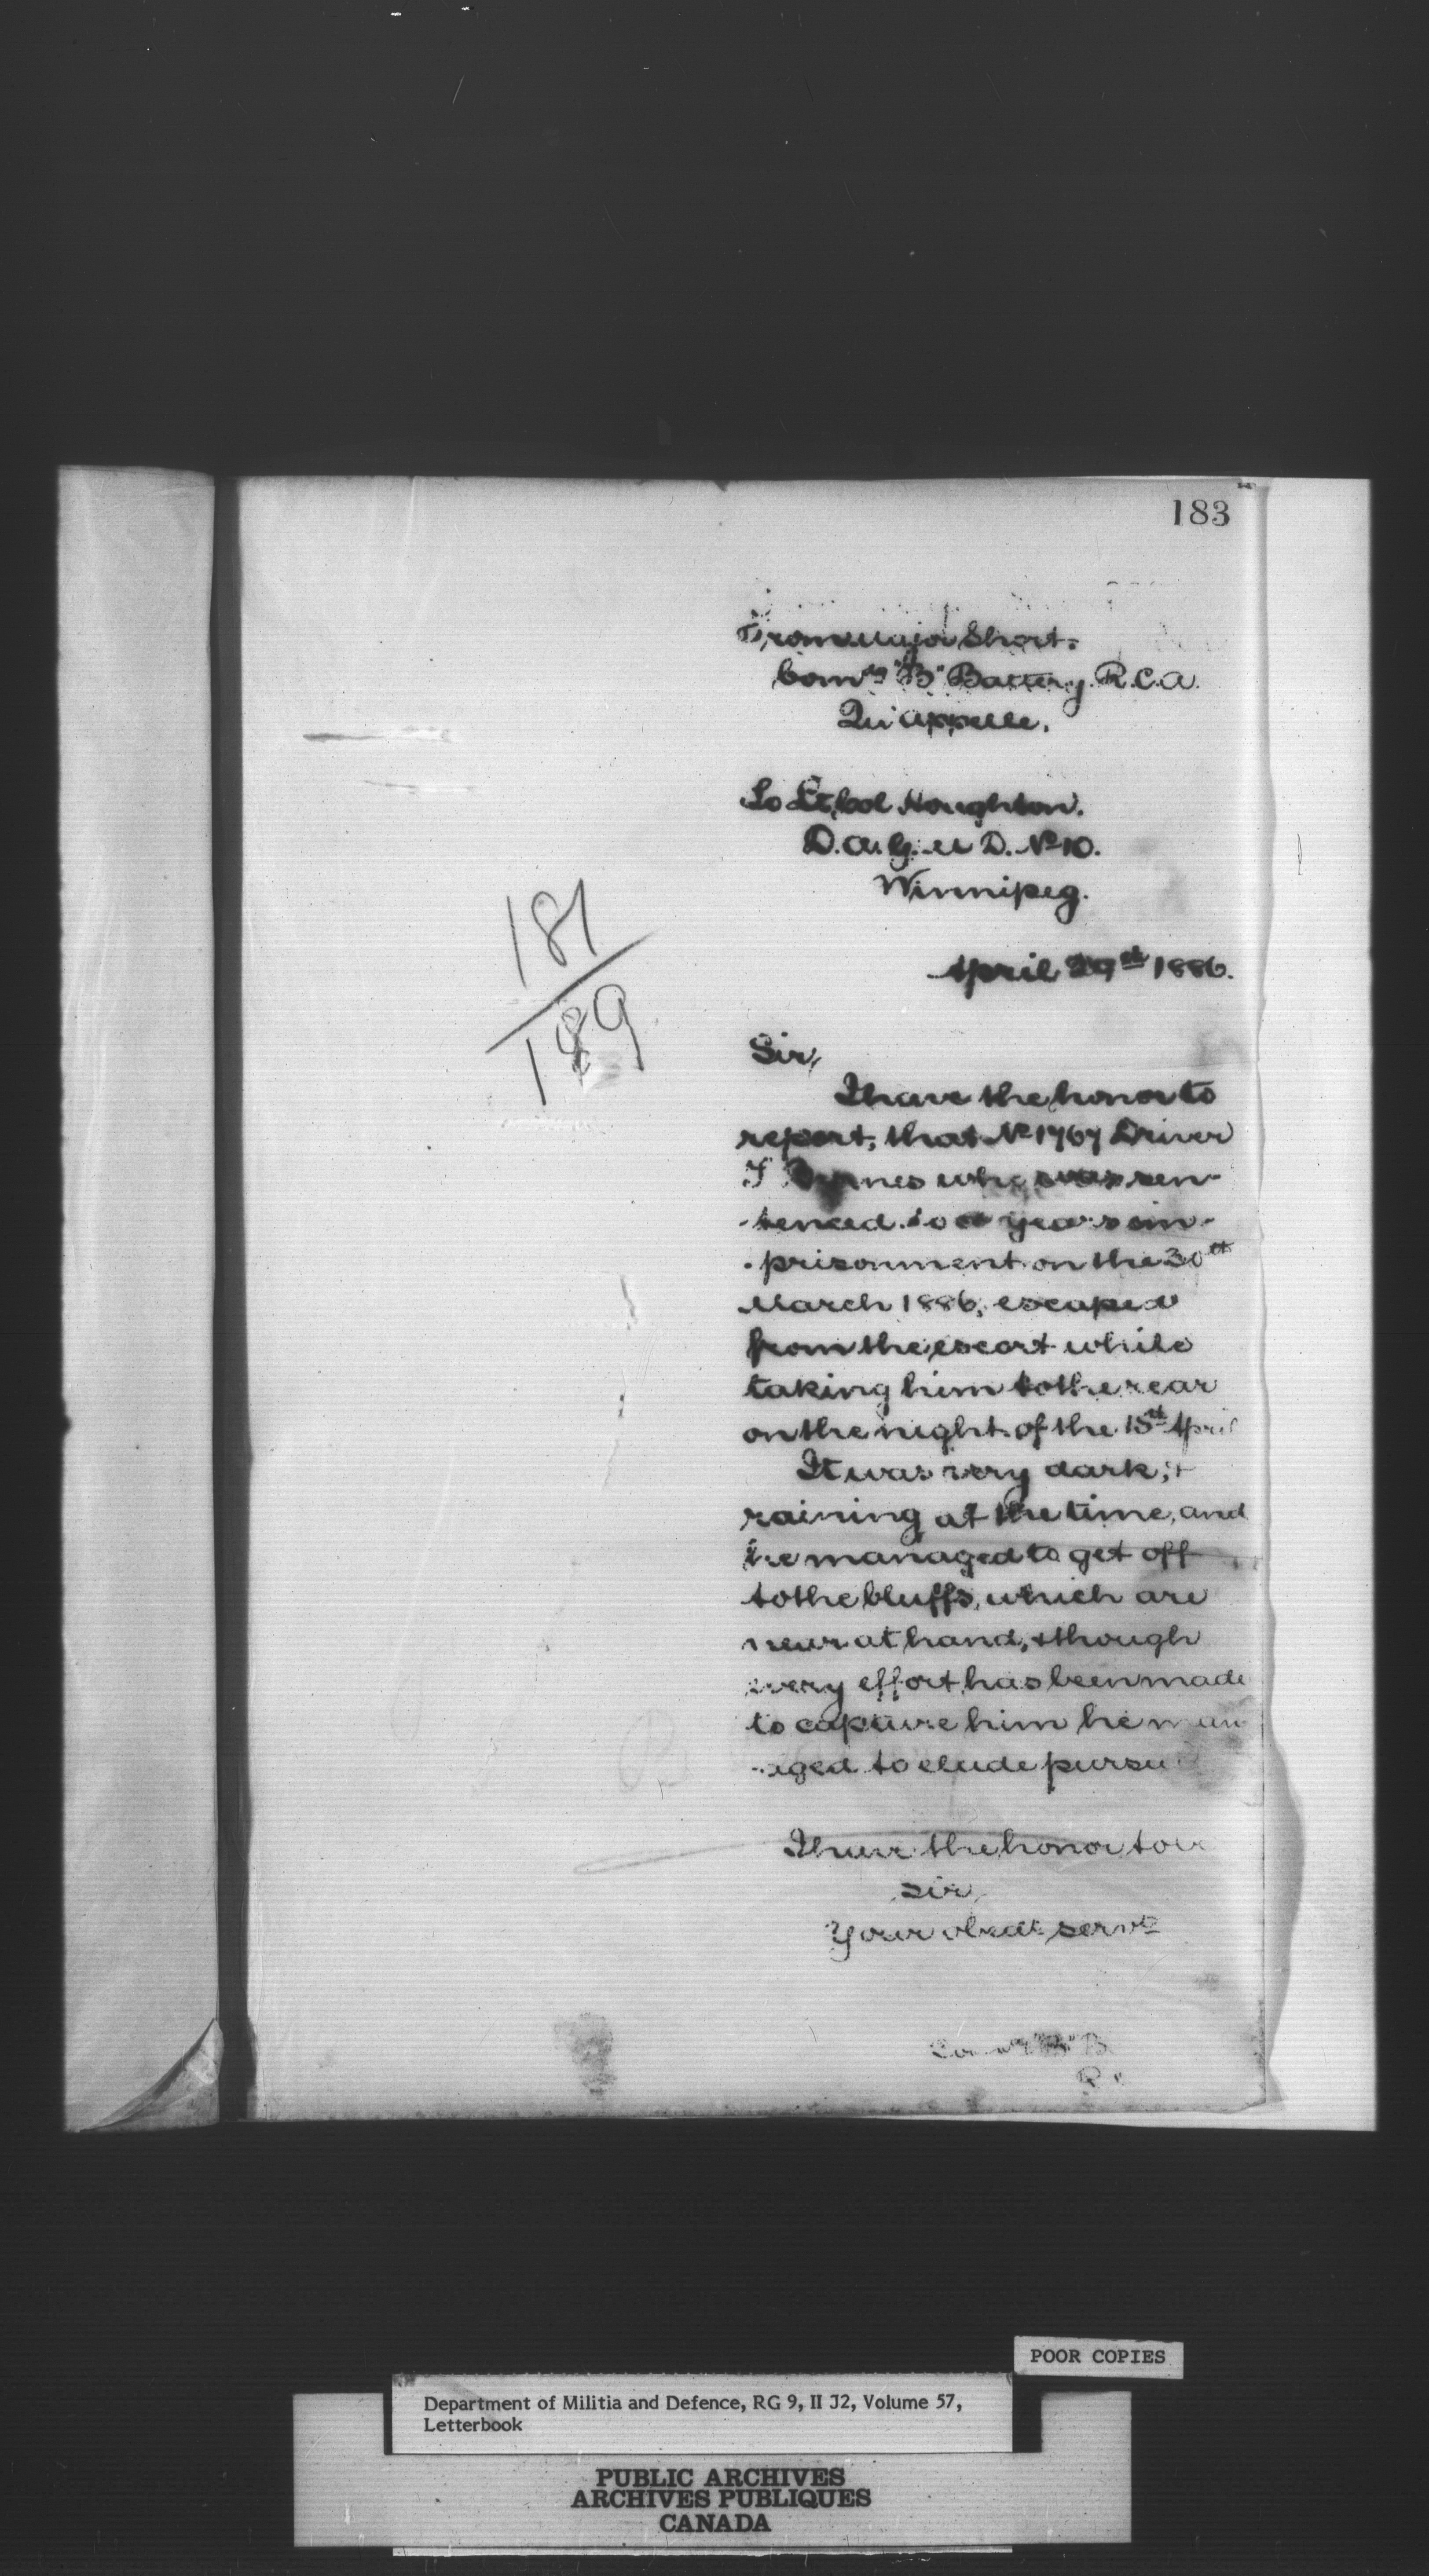 183
From Major Short.
Comdg "B" Battery. R.C.A.
Qu'appelle.
To Lt. Col Houghton.
D.A.G. M D. No 10.
Winnipeg.
181
189
April 1886.
Sir,
I have the honor to
report, that No 1767 Driver
who was sen-
-tenced to a years im-
-prisonment on the 30th
March 1886, escaped
from the escort while
taking him to the rear
on the night of the April
It was very dark, &
raining at the time, and
he managed to get off
to the bluffs, which are
near at hand, & though
every effort has been made
to capture him he man
-aged to elude
I have the honor to
Sir
Your obedt servt
POOR COPIES
Department of Militia and Defence, RG 9, II J2, Volume 57,
Letterbook
PUBLIC ARCHIVES
ARCHIVES PUBLIQUES
CANADA